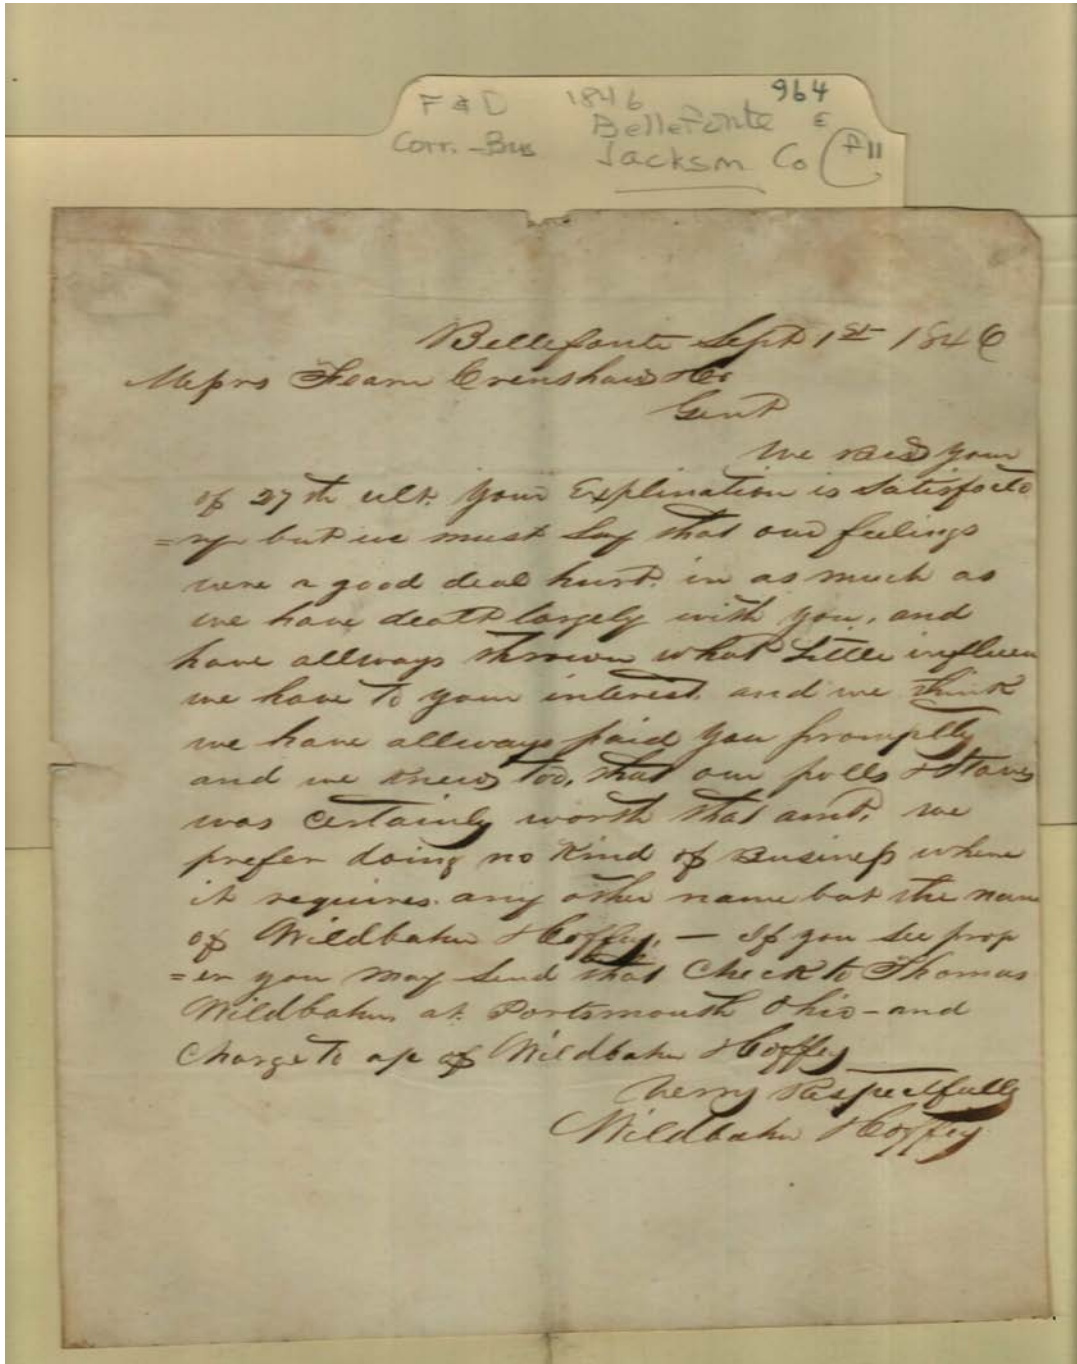 F & D 1846 964
Bellefonte
Corr. - Bus Jackson Co
Bellefonte Sept 1st 1846
Messrs Fearn Crenshaw & Co
Gent
We recd your
of 27th ult. your Explination is Satisfacto
=ry but we must Say that our feelings
were a good deal hurt. in as much as
we have dealt largely with you, and
have allways thrown what Little influen
we have to your interest. and we think
we have allways paid you promptly
and we knew too, that our
was certainly worth that amt. we
prefer doing no Kind of Business where
it requires any other name but the name
of Wildbahn & Coffey, — If you see prop
=er you may Send that Check to Thomas
Wildbahn at Portsmouth Ohio - and
Charge to a/c of Wildbahn & Coffey
Verry Respectfully
Wildbahn & Coffey